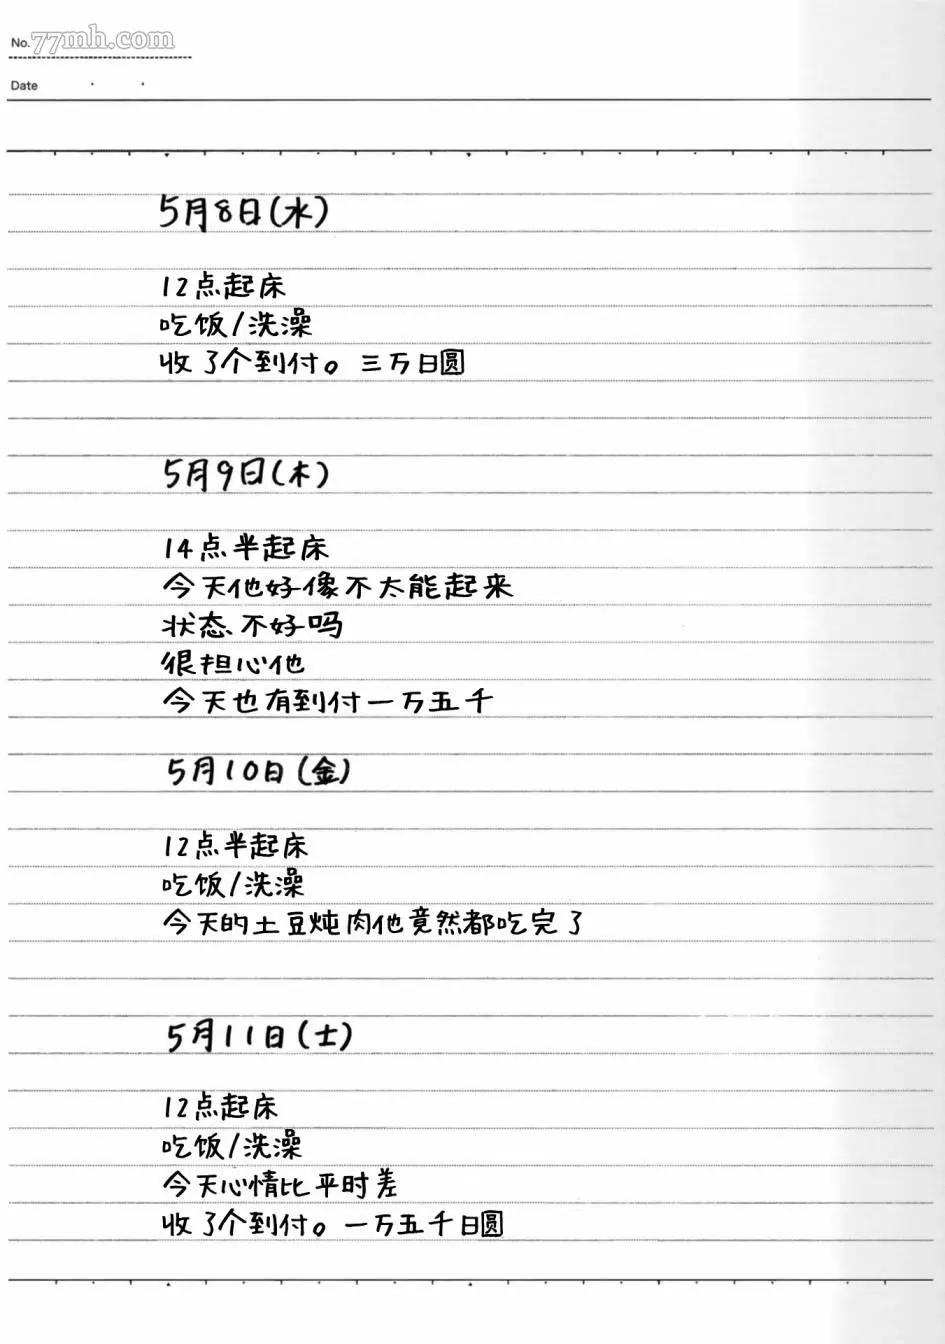 No. 77mh.com
Date
5月8日(水)
12点起床
吃饭/洗澡
收了个到付。三万日圆
5月9日(木)
14点半起床
今天他好像不太能起来
状态不好吗
很担心他
今天也有到付一万五千
5月10日(金)
12点半起床
吃饭/洗澡
今天的土豆炖肉他竟然都吃完了
5月11日(土)
12点起床
吃饭/洗澡
今天心情比平时差
收了个到付。一万五千日圆